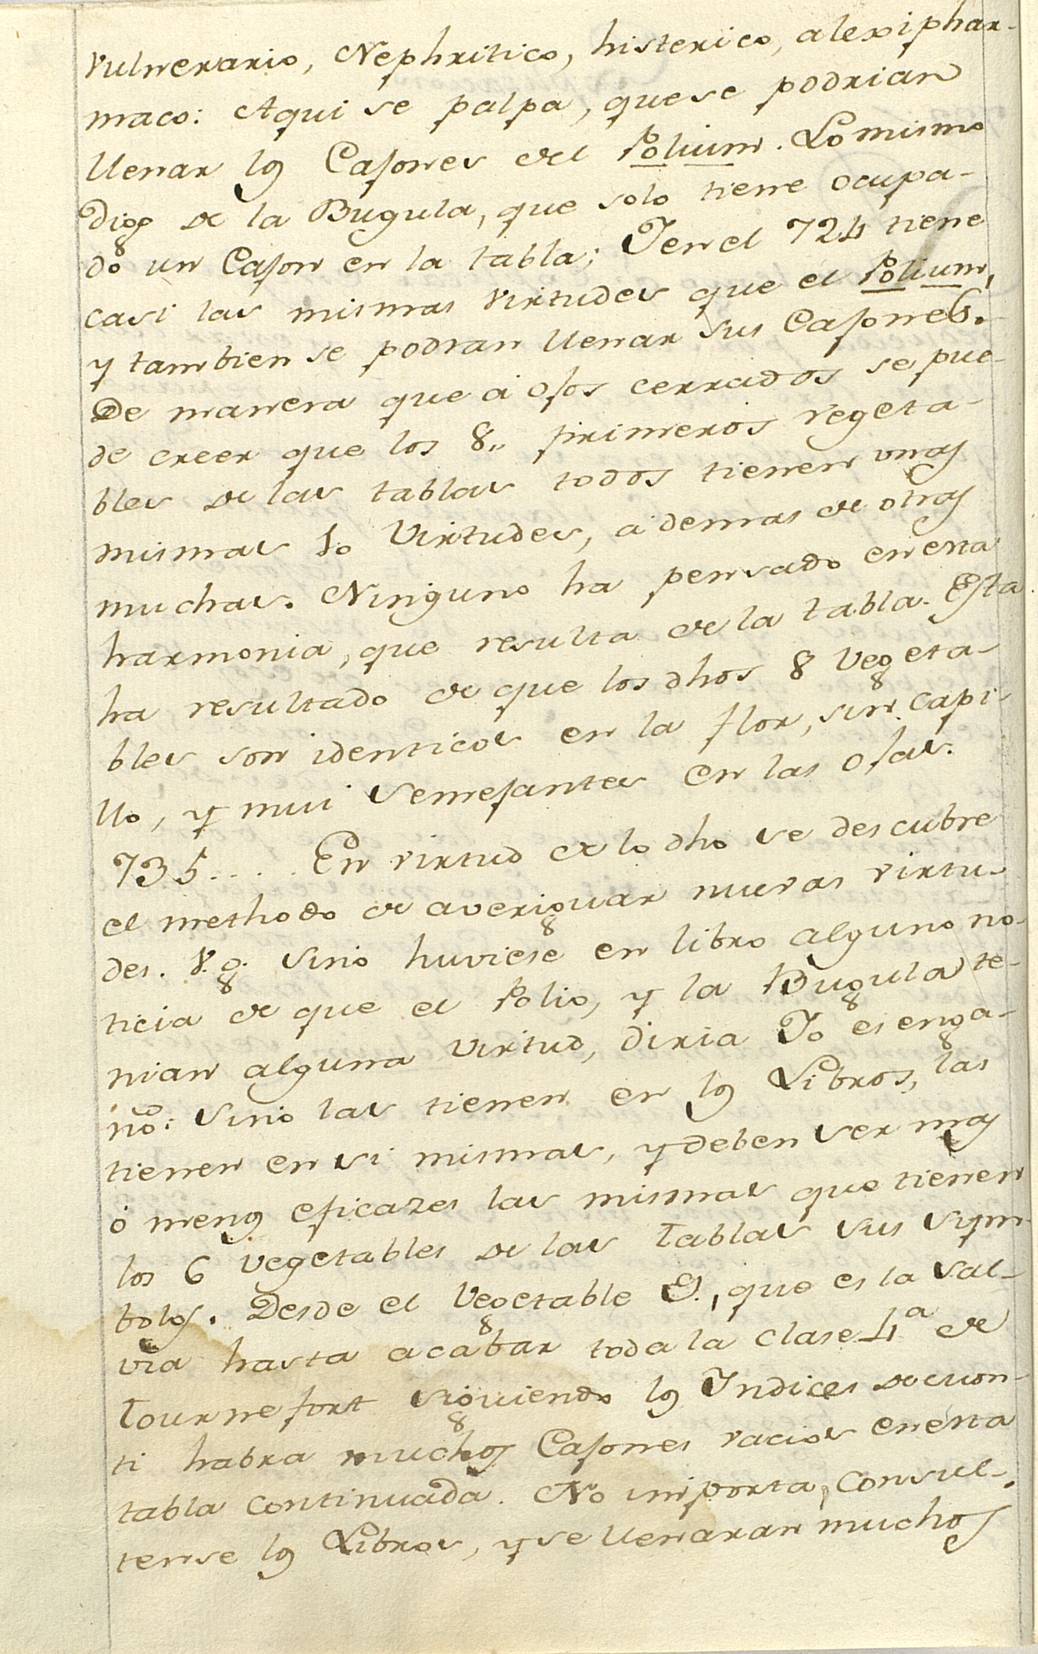 vulnerario, Nephritico, histerico, alexiphar-
maco: Aqui se palpa, que se podrian
llenar los Casones del Polium. Lo mismo
digo de la Bugula, que solo tiene ocupa-
do un Cason en la tabla; Ien el 724 tiene
casi las mismas virtudes que el Polium,
y tambien se podran llenar sus Casones.
De manera que á ojos cerrados se pue-
de creer que los 8,, primeros vegeta-
bles de las tablas todos tienen unas
mismas 10 Virtudes, ademas de otras
muchas. Ninguno ha pensado en esta
harmonia, que resulta de la tabla. Esta
ha resultado de que los dhos 8 Vegeta-
bles son identicos en la flor, sin capi-
llo, y mui semejantes en las ojas.
735.... En virtud de lo dho se descubre
el methodo de averiguar nuevas virtu-
des. V.g. Sino huviese en libro alguno no-
ticia de que el Polio, y la Bugula te-
nian alguna virtud, diria Io es enga-
ño: Sino las tienen en los Libros, las
tienen en si mismas, y deben ser mas
ó menos eficazes las mismas que tienen
los 6 vegetables de las Tablas sus sym-
bolos. Desde el Vegetable 9., que es la sal-
via hasta acabar toda la clase 4ª de
Tournefort siguiendo los Indices de
ti habra muchos Casones vacios en esta
tabla continuada. No importa, consul-
tense los Libros, y se llenaran muchos